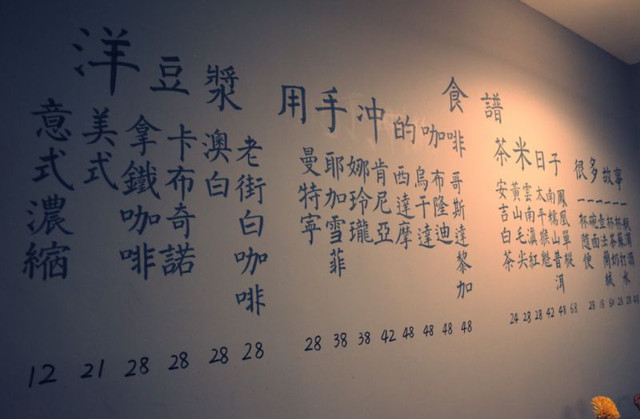 洋豆漿
意式濃縮
美式
拿鐵咖啡
卡布奇諾
澳白
老街白咖啡
12 21 28 28 28 28
用手冲的咖啡
曼特寧
耶加雪菲
娜玲瓏
肯尼亞
西達摩
烏干達
布隆迪
哥斯達黎加
28 38 38 42 48 48 48 48
食譜
茶米日子
安吉白茶
黃山毛尖
雲南滇紅
太平猴魁
南糯山普洱
鳳凰單樅
24 28 28 42 48 68
很多故事
一杯隨便